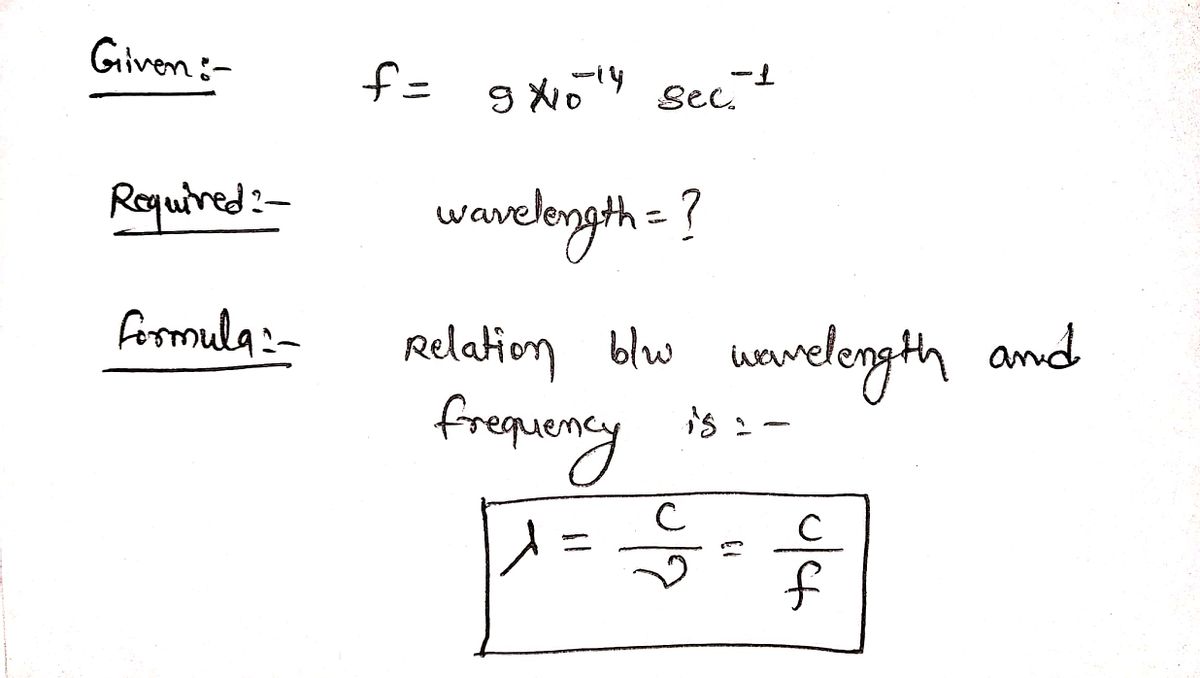 Given:-
f = 9×10⁻¹⁴ sec.⁻¹
Required:-
wavelength = ?
formula:-
Relation b/w wavelength and
frequency is:-
λ = c/ν = c/f